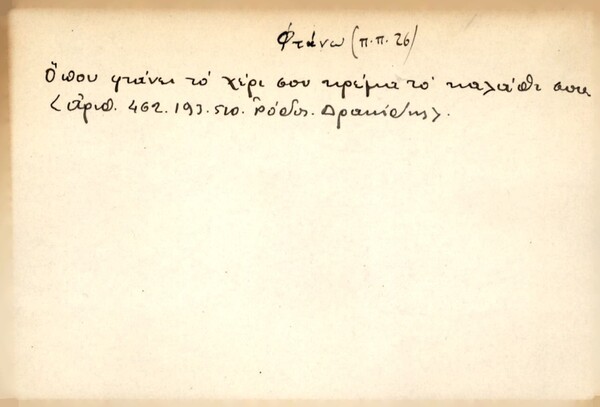 Φτάνω (π.π. 26)
Ὅπου φτάνει τὸ χέρι σου κρέμα τὸ καλάθι σου
<ἀριθ. 462. 193. Ῥόδος. Δρακίδης>.